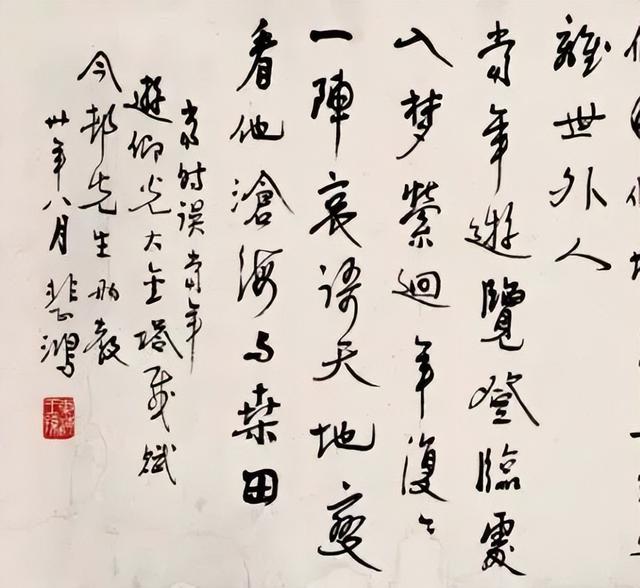 離世外人
當年遊覽登臨處
入梦縈迴年復々
一陣哀天地變
看他滄海与桑田
當时誤當年
遊仰光大金塔感賦
今邨先生教
卅年八月悲鴻